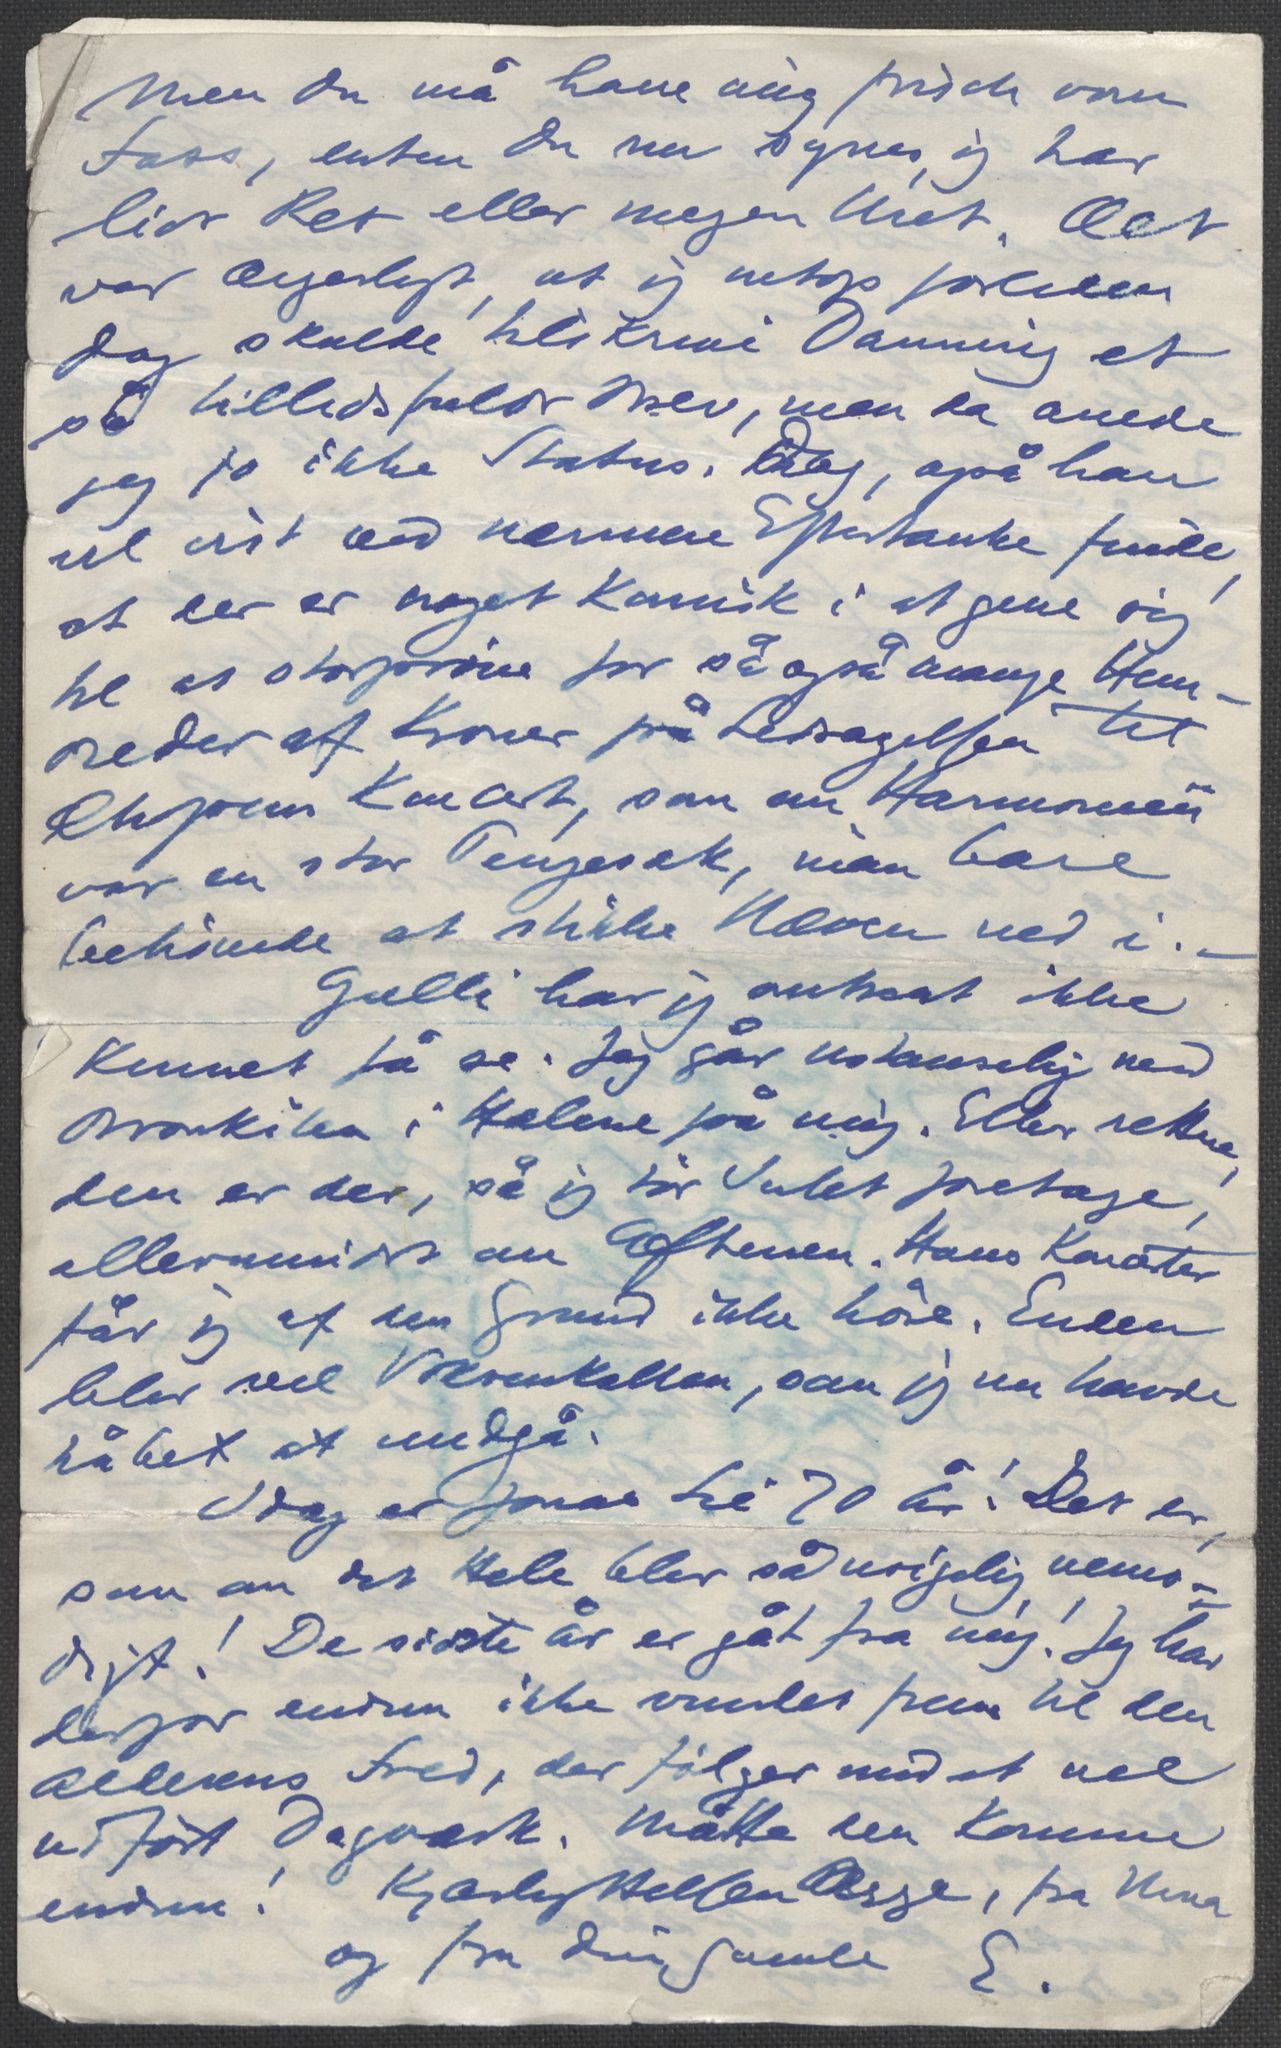 Men du må have mig frisch vom
Fass, enten du nu synes, jeg har
lidt Ret eller megen Uret. Det
var ærgerligt, at jeg netop forleden
Dag skulde tilskrive Danning et
så tillidsfuldt Brev, men da anede
jeg jo ikke Status. Også han
vil vist ved nærmere Eftertanke finde,
at der er noget Komisk i at give sig
til at storprøve for så også mange Hun-
dreder af Kroner på Ledsagelsen til
Chopins Koncert, som om Harmonien
var en stor Pengesæk, man bare
behøvede at stikke Næven ned i. –
Gulli har jeg endnu ikke
kunnet få se. Jeg går ustanselig med
Bronkiten i Hælene på mig. Eller rettere,
den er der, så jeg tør Intet foretage,
allermindst om Aftenen. Hans Koncerter
får jeg af den Grund ikke høre. Enden
blir vel Voksenkollen, som jeg nu havde
håbet at undgå.
Idag er Jonas Lie 70 År! Det er,
som om det Hele blir så urigelig vemo-
digt! De sidste År er gåt fra mig! Jeg har
derfor endnu ikke vundet frem til den
Alderens Fred, der følger med et vel
udført Dagværk. Måtte den komme
endnu! Kjærlig Hilsen Begge, fra Nina
og fra din gamle E.